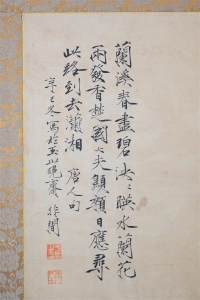 蘭溪春盡碧泱〻映水蘭花
雨發香楚國大夫顦顇日應尋
此路到去瀟湘 唐人句
辛巳冬寫於玉山硯齋 非闇